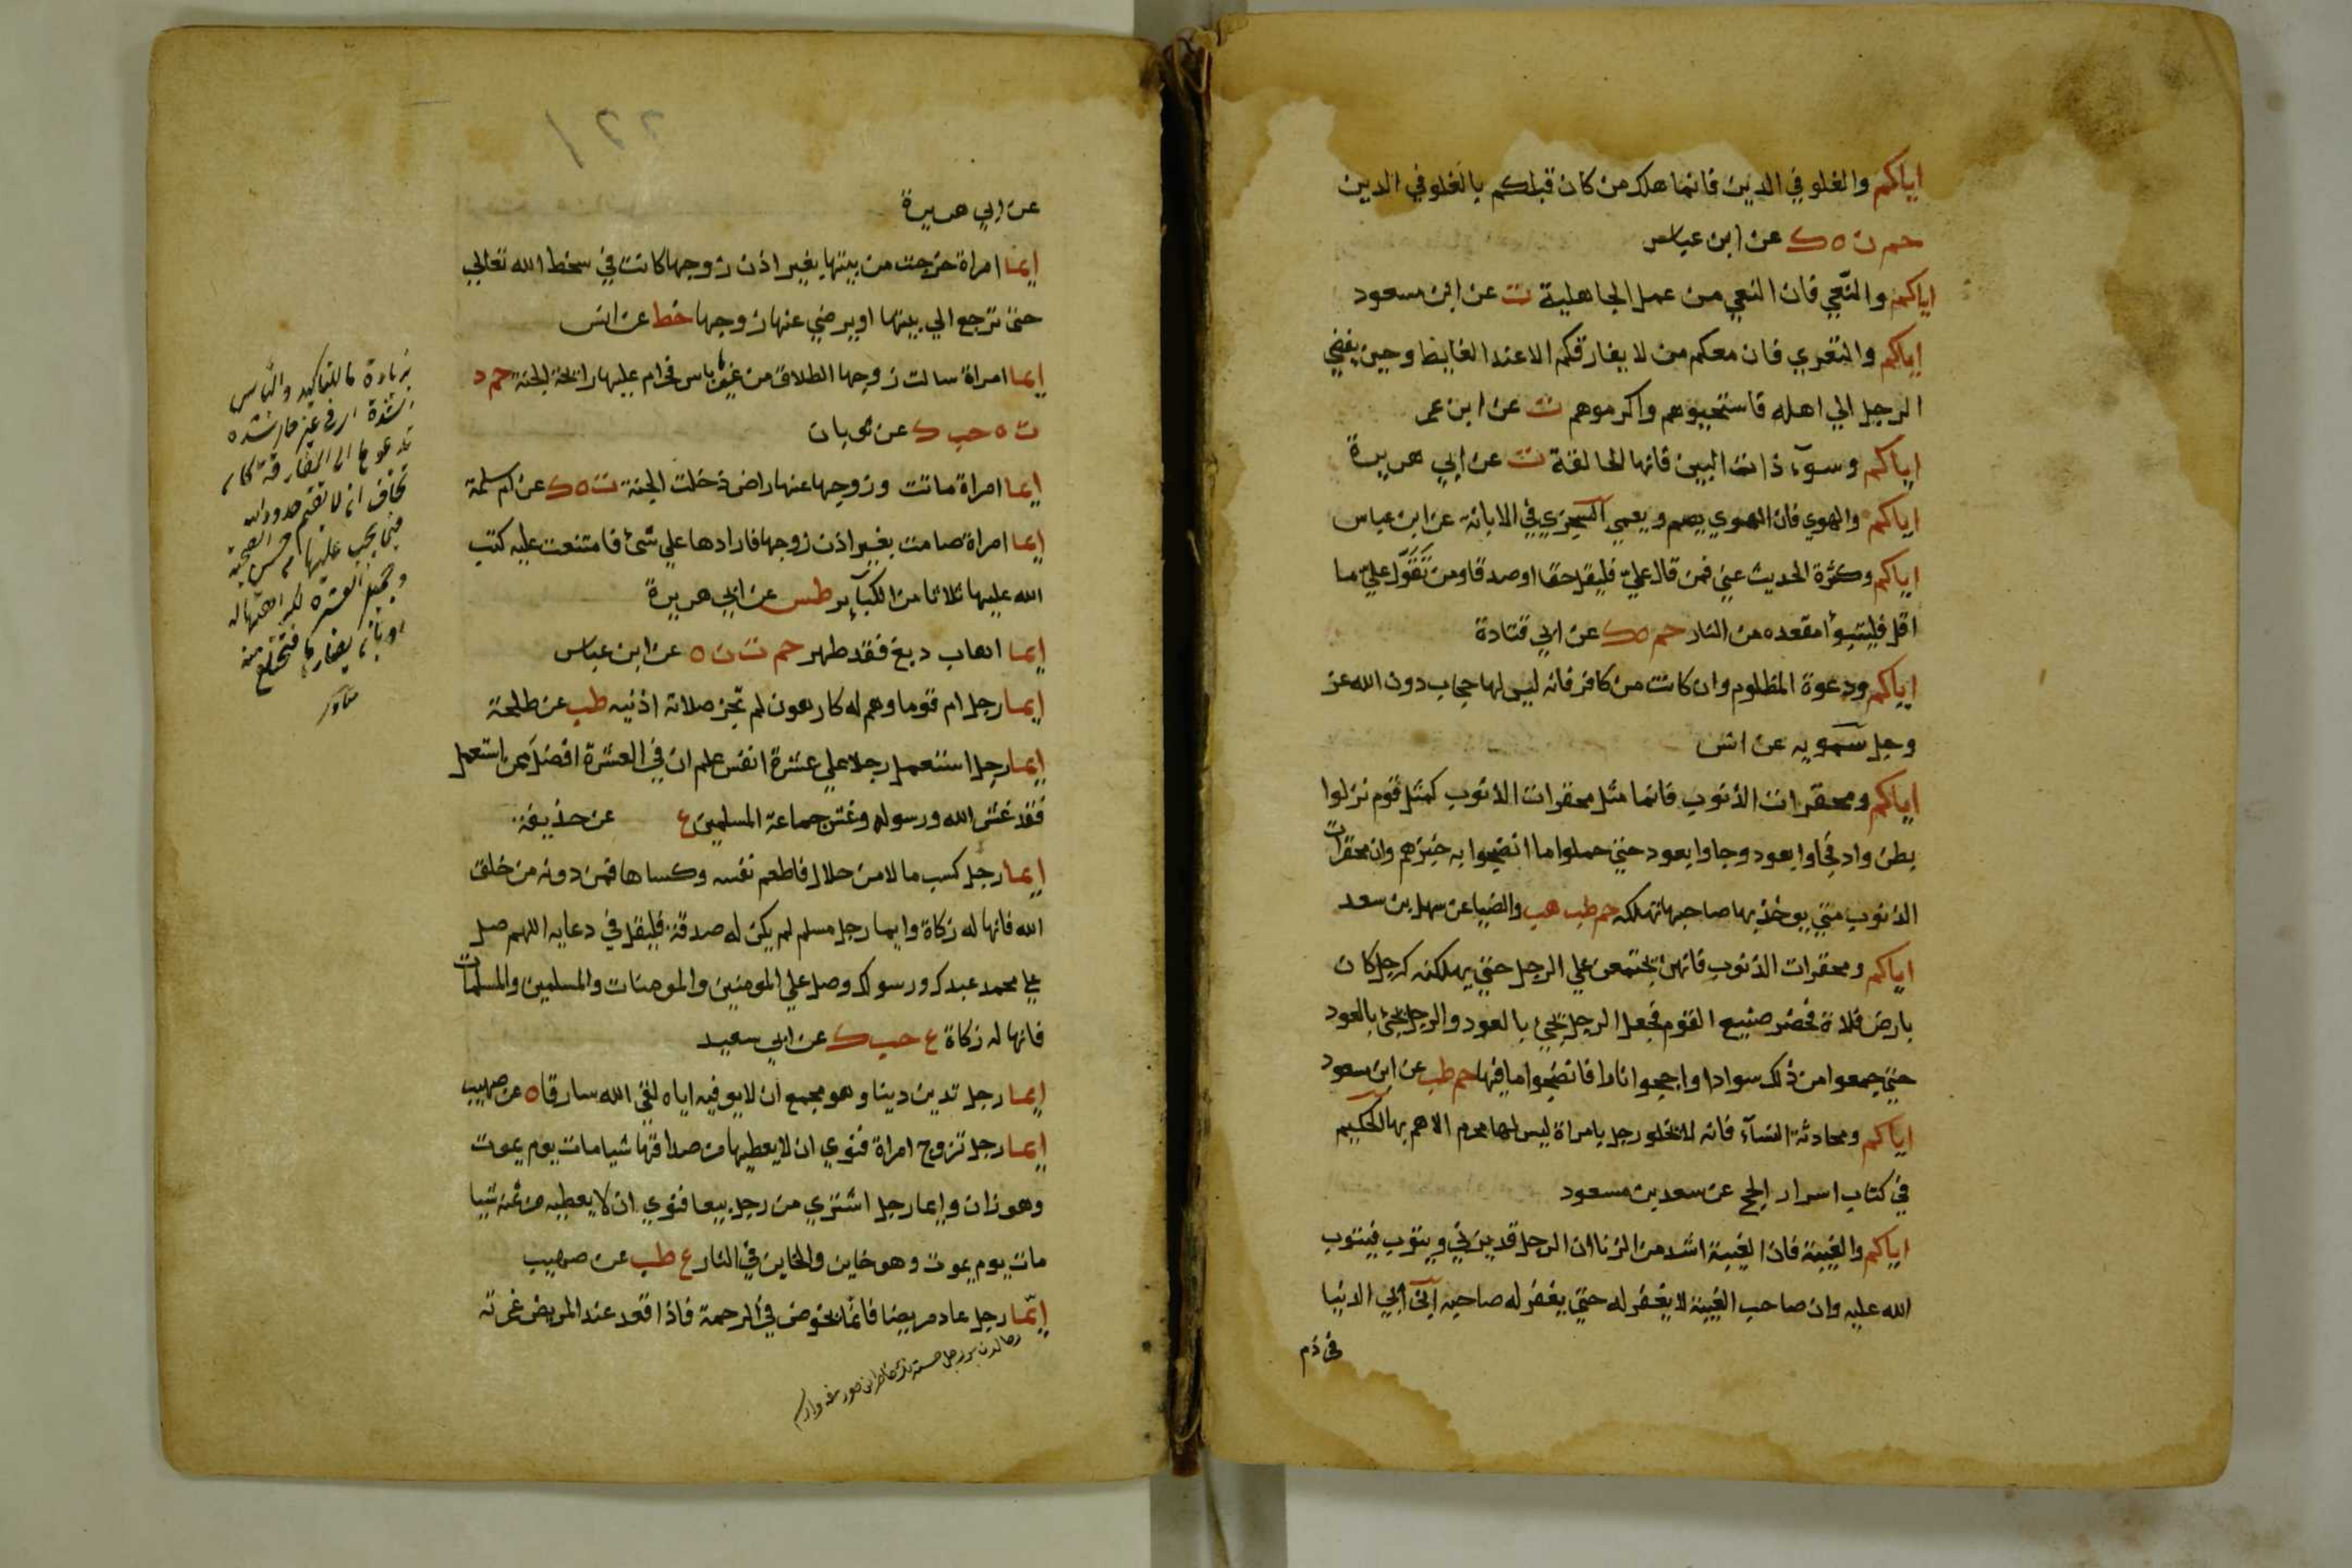 اياكم والغلو في الدين فانما هلك من كان قبلكم بالغلو في الدين
حم ن ه ك عن ابن عباس
اياكم والنعي فان النعي من عمل الجاهلية ت عن ابن مسعود
اياكم والتعري فان معكم من لا يفارقكم الا عند الغايط وحين يفضي
الرجل الي اهله فاستحيوهم واكرموهم ت عن ابن عمر
اياكم وسوء ذات البين فانها الحالقة ت عن ابي هريرة
اياكم والهوي فان الهوي يصم ويعمي السجزي في الابانة عن ابن عباس
اياكم وكثرة الحديث عني فمن قال علي فليقل حقا او صدقا ومن تقول علي ما
اقل فليتبوأ مقعده من النار حم ه ك عن ابي قتادة
اياكم ودعوة المظلوم وان كانت من كافر فانه ليس لها حجاب دون الله عز
وجل سمويه عن انس
اياكم ومحقرات الذنوب فانما مثل محقرات الذنوب كمثل قوم نزلوا
بطن واد فجاوا بعود وجاوا بعود حتي حملوا ما انضجوا به خبزهم وان محقرات
الذنوب متي يوخذ بها صاحبها تهلكه حم طب هب والضيا عن سهل بن سعد
اياكم ومحقرات الذنوب فانهن يجتمعن علي الرجل حتي يهلكنه كرجل كان
بارض فلاة فحضر صنيع القوم فجعل الرجل يجئ بالعود والرجل يجئ بالعود
حتي جمعوا من ذلك سوادا واججوا نارا فانضجوا ما فيها حم طب عن ابن مسعود
اياكم ومحادثة النسآء فانه لا يخلو رجل بامراة ليس لها محرم الا هم بها الحكيم
في كتاب اسرار الحج عن سعد بن مسعود
اياكم والغيبة فان الغيبة اشد من الزنا ان الرجل قد يزني ويتوب فيتوب
الله عليه وان صاحب الغيبة لا يغفر له حتي يغفر له صاحبه ابن ابي الدنيا
في ذم
٢٢١
عن ابي هريرة
ايما امراة خرجت من بيتها بغير اذن زوجها كانت في سخط الله تعالي
حتي ترجع الي بيتها او يرضي عنها زوجها خط عن انس
ايما امراة سالت زوجها الطلاق من غير ما باس فحرام عليها رايحة الجنة حم د
ت ه حب ك عن ثوبان
ايما امراة ماتت وزوجها عنها راض دخلت الجنة ت ه ك عن ام سلمة
ايما امراة صامت بغير اذن زوجها فارادها علي شئ فامتنعت عليه كتب
الله عليها ثلاثا من الكبآير طس عن ابي هريرة
ايما اهاب دبغ فقد طهر حم ت ن ه عن ابن عباس
ايما رجل ام قوما وهم له كارهون لم تجز صلاته اذنيه طب عن طلحة
ايما رجل استعمل رجلا علي عشرة انفس علم ان في العشرة افضل ممن استعمل
فقد غش الله ورسوله وغش جماعة المسلمين ع عن حذيفة
ايما رجل كسب مالا من حلال فاطعم نفسه وكساها فمن دونه من خلق
الله فانها له زكاة وايما رجل مسلم لم يكن له صدقة فليقل في دعايه اللهم صل
علي محمد عبدك ورسولك وصل علي المومنين والمومنات والمسلمين والمسلمات
فانها له زكاة ع حب ك عن ابي سعيد
ايما رجل تدين دينا وهو مجمع ان لا يوفيه اياه لقي الله سارقا ه عن صهيب
ايما رجل تزوج امراة فنوي ان لا يعطيها من صداقها شيا مات يوم يموت
وهو زان وايما رجل اشتري من رجل بيعا فنوي ان لا يعطيه من ثمنه شيا
مات يوم يموت وهو خاين والخاين في النار ع طب عن صهيب
ايما رجل عاد مريضا فانما يخوض في الرحمة فاذا قعد عند المريض غمرته
بزيادة ما للتاكيد والباس
الشدة اي في غير حال شدة
تدعوها الي المفارقة كان
تخاف ان لا تقيم حدود الله
فيما يجب عليها من حسن الصحبة
وجميل العشرة
مناوي